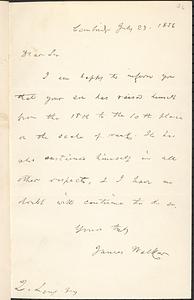 Cambridge July 23. 1856
Dear Sir
I am happy to inform you
that your son has raised himself
from the 18th to the 10th place
on the scale of rank. He has
also sustained himself in all
other respects, & I have no
doubt will continue to do so.
Yours truly
James Walker
Long Esq